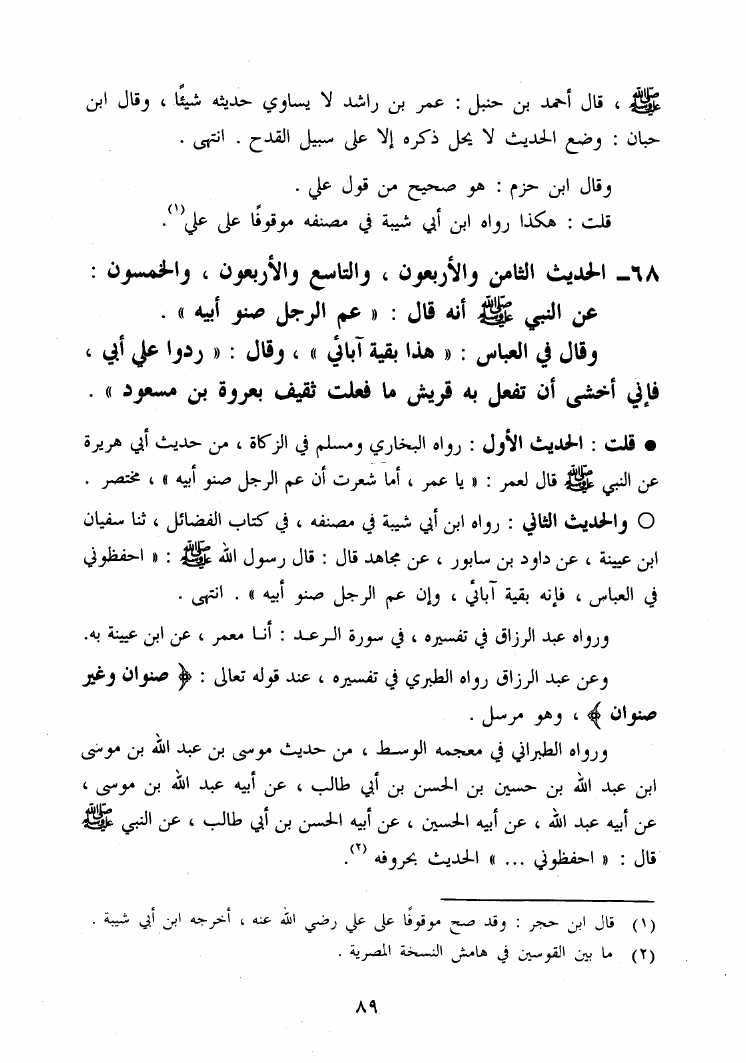 ﷺ ، قال أحمد بن حنبل : عمر بن راشد لا يساوي حديثه شيئًا ، وقال ابن
حبان : وضع الحديث لا يحل ذكره إلا على سبيل القدح . انتهى .
وقال ابن حزم : هو صحيح من قول علي .
قلت : هكذا رواه ابن أبي شيبة في مصنفه موقوفًا على علي(١).
٦٨ـ الحديث الثامن والأربعون ، والتاسع والأربعون ، والخمسون :
عن النبي ﷺ أنه قال : « عم الرجل صنو أبيه » .
وقال في العباس : « هذا بقية آبائي » ، وقال : « ردوا علي أبي ،
فإني أخشى أن تفعل به قريش ما فعلت ثقيف بعروة بن مسعود » .
● قلت : الحديث الأول : رواه البخاري ومسلم في الزكاة ، من حديث أبي هريرة
عن النبي ﷺ قال لعمر : « يا عمر ، أما شعرت أن عم الرجل صنو أبيه » ، مختصر .
○ والحديث الثاني : رواه ابن أبي شيبة في مصنفه ، في كتاب الفضائل ، ثنا سفيان
ابن عيينة ، عن داود بن سابور ، عن مجاهد قال : قال رسول الله ﷺ : « احفظوني
في العباس ، فإنه بقية آبائي ، وإن عم الرجل صنو أبيه » . انتهى .
ورواه عبد الرزاق في تفسيره ، في سورة الـرعـد : أنـا معمر ، عن ابن عيينة به.
وعن عبد الرزاق رواه الطبري في تفسيره ، عند قوله تعالى : ﴿ صنوان وغير
صنوان ﴾ ، وهو مرسل .
ورواه الطبراني في معجمه الوسـط ، من حديث موسى بن عبد الله بن موسى
ابن عبد الله بن حسين بن الحسن بن أبي طالب ، عن أبيه عبد الله بن موسى ،
عن أبيه عبد الله ، عن أبيه الحسين ، عن أبيه الحسن بن أبي طالب ، عن النبي ﷺ
قال : « احفظوني ... » الحديث بحروفه (٢).
(١) قال ابن حجر : وقد صح موقوفًا على علي رضي الله عنه ، أخرجه ابن أبي شيبة .
(٢) ما بين القوسين في هامش النسخة المصرية .
٨٩